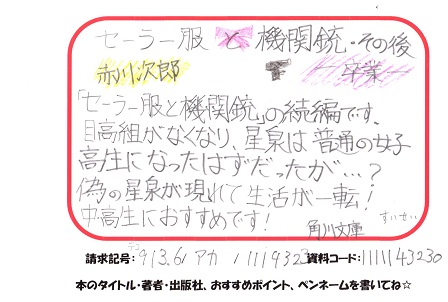 セーラー服と機関銃・その後
赤川次郎 卒業
「セーラー服と機関銃」の続編です。
目高組がなくなり、星泉は普通の女子
高生になったはずだったが…?
偽の星泉が現れて生活が一転!
中高生におすすめです!
角川文庫 すいせい
請求記号: 913.6 アカ 資料コード: 1111143230
本のタイトル・著者・出版社、おすすめポイント、ペンネームを書いてね☆